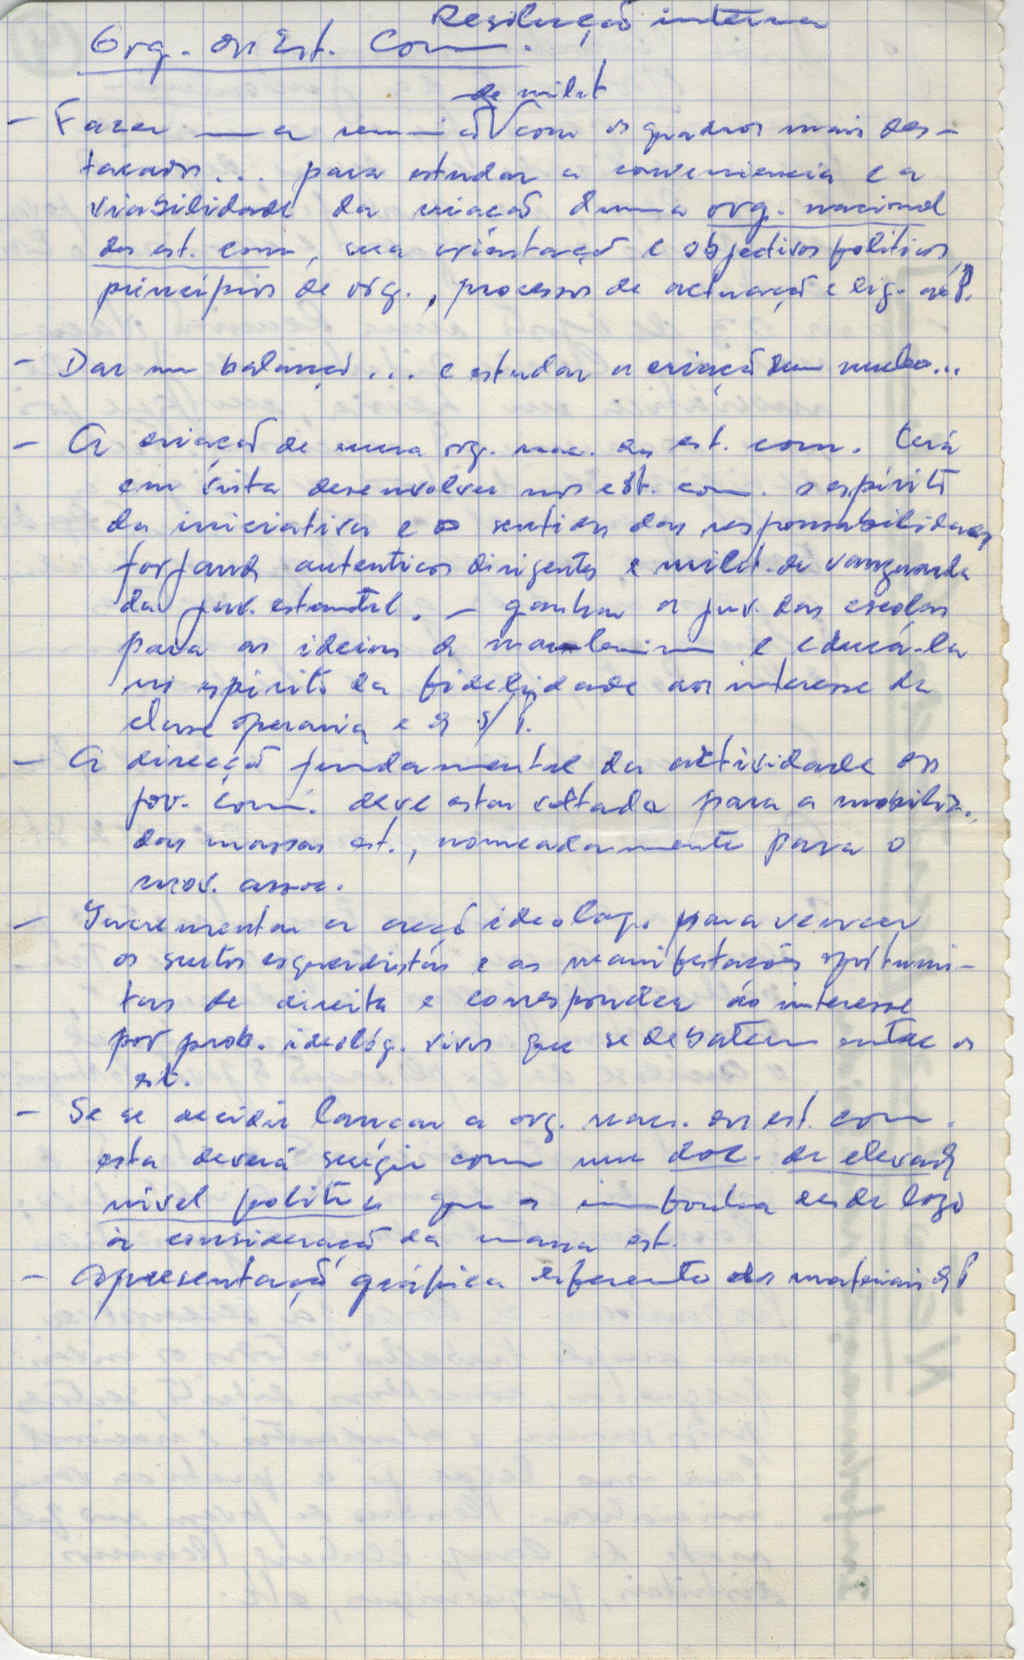 Resolução interna
Org. dos Est. Com.
de milit
- Fazer uma reunião com os quadros mais des-
tacados... para estudar a conveniencia e a
viabilidade da criação duma org. nacional
dos est. com, sua orientação e objectivos políticos,
princípios de org., processos de actuação e lig. ao P.
- Dar um balanço... e estudar a criação dum nucleo...
- A criação de uma org. nac. dos est. com. terá
em vista desenvolver nos est. com. o espírito
da iniciativa e o sentido das responsabilidades
forjando autenticos dirigentes e milit. de vanguarda
da juv. estudantil. - ganhar a juv. das escolas
para as ideias do marx-leninismo e educá-la
no espirito da fidelidade aos interesse da
classe operaria e do s/ P.
- A direcção fundamental da actividade dos
jov. com. deve estar voltada para a mobiliz.
das massas est., nomeadamente para o
mov. assoc.
- Incrementar a acção ideolog. para vencer
os surtos esquerdistas e as manifestações oportunis-
tas de direita e corresponder ao interesse
por prob. ideológ. vivos que se debatem entre os
est.
- Se se decidir lançar a org. nac. dos est. com.
esta deverá surgir com um doc. de elevado
nivel politico que a imponha desde logo
à consideração da massa est.
- Apresentação gráfica diferente dos materiais do P